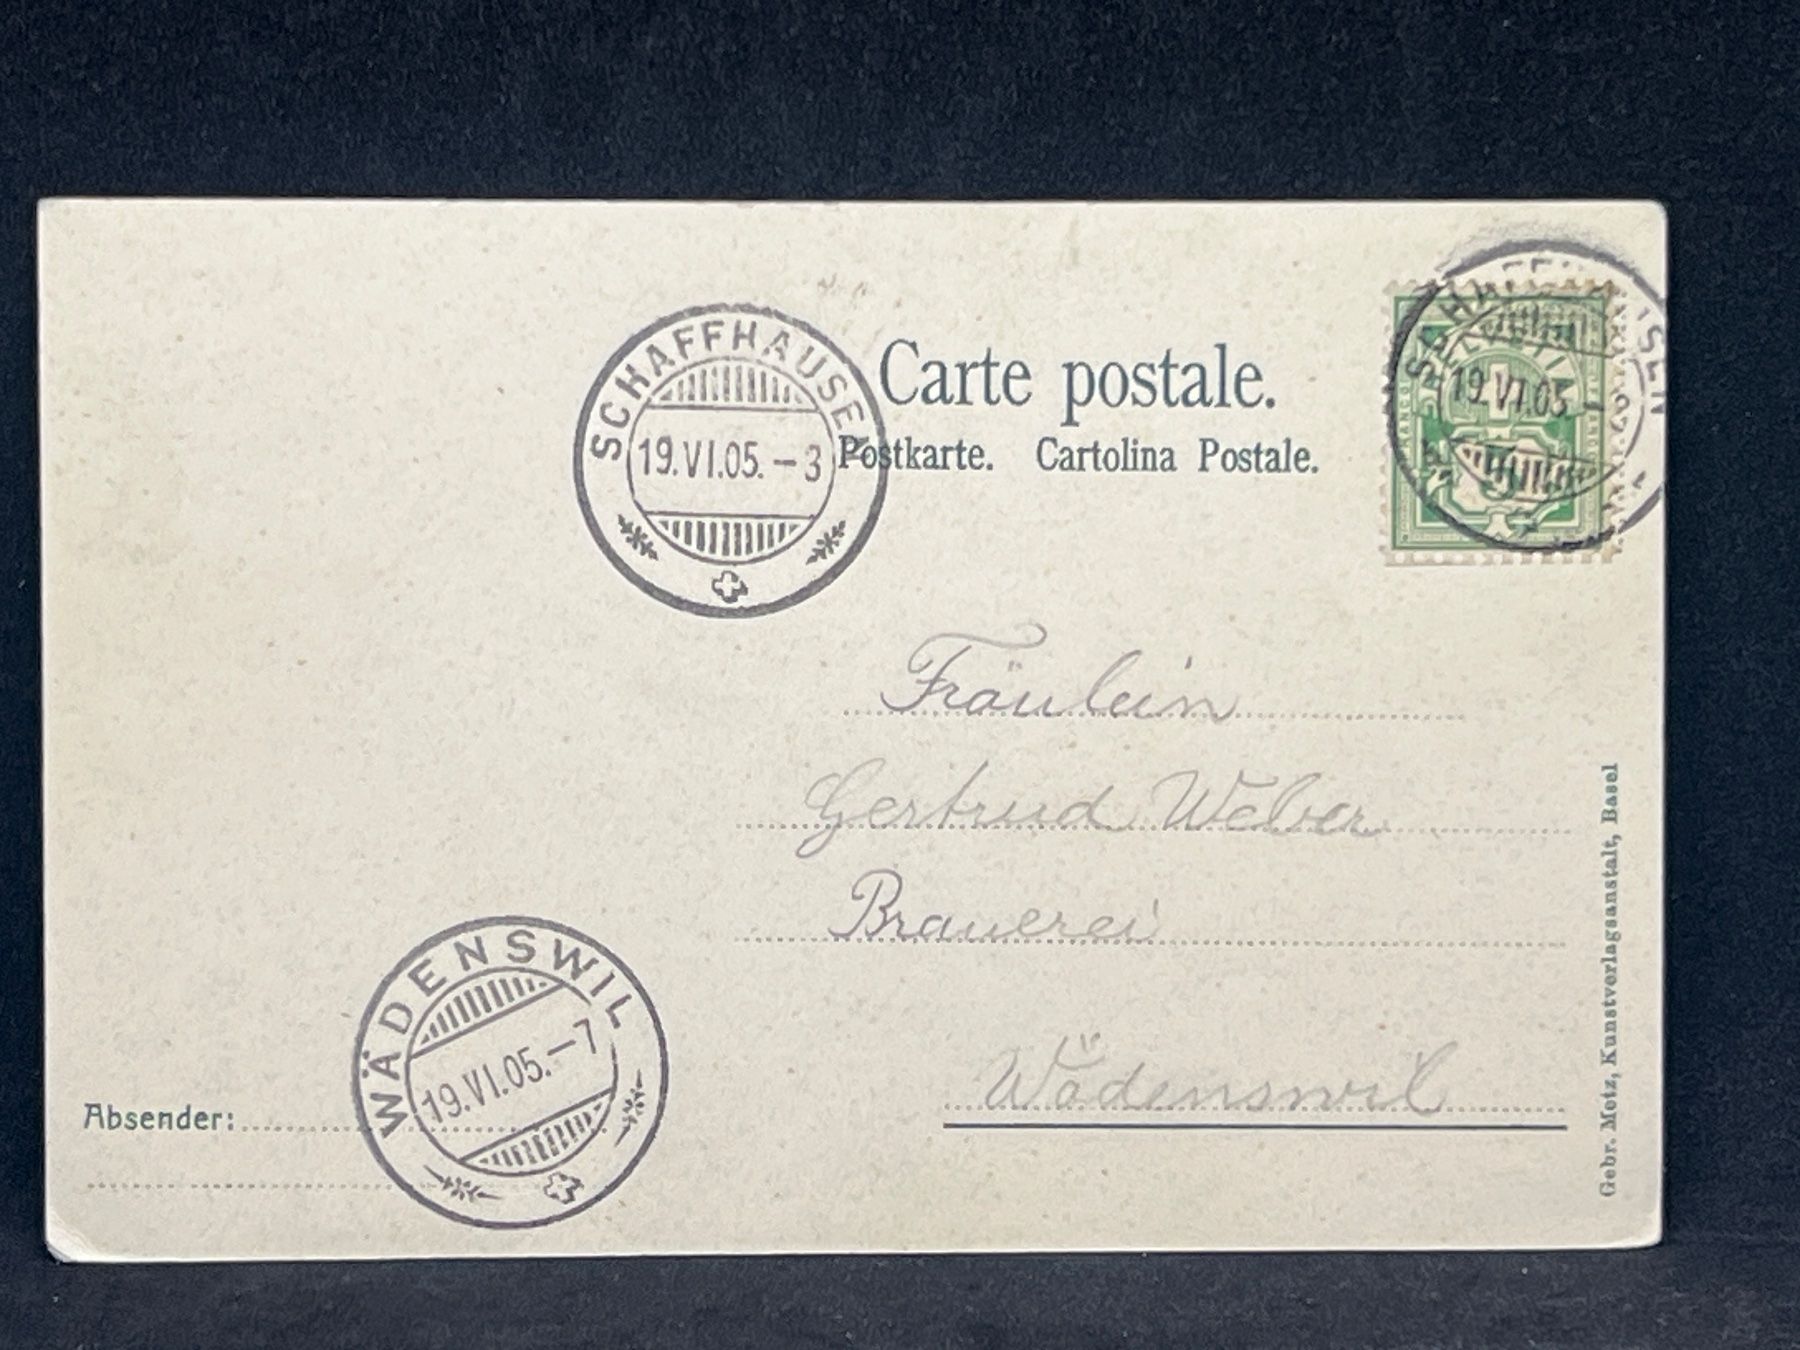 Carte postale.
Postkarte. Cartolina Postale.
SCHAFFHAUSEN
19.VI.05.–3
SCHAFFHAUSEN
19.VI.05
HELVETIA
5
Fräulein
Gertrud Weber
Brauerei
Wädenswil
WÄDENSWIL
19.VI.05.–7
Absender:
Gebr. Metz, Kunstverlagsanstalt, Basel